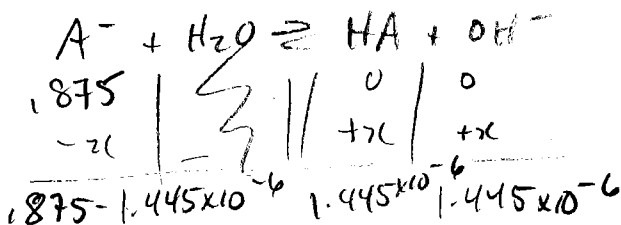 A⁻ + H₂O ⇌ HA + OH⁻
.875 0 0
-x - +x +x
.875-1.445x10⁻⁶ 1.445x10⁻⁶ 1.445x10⁻⁶